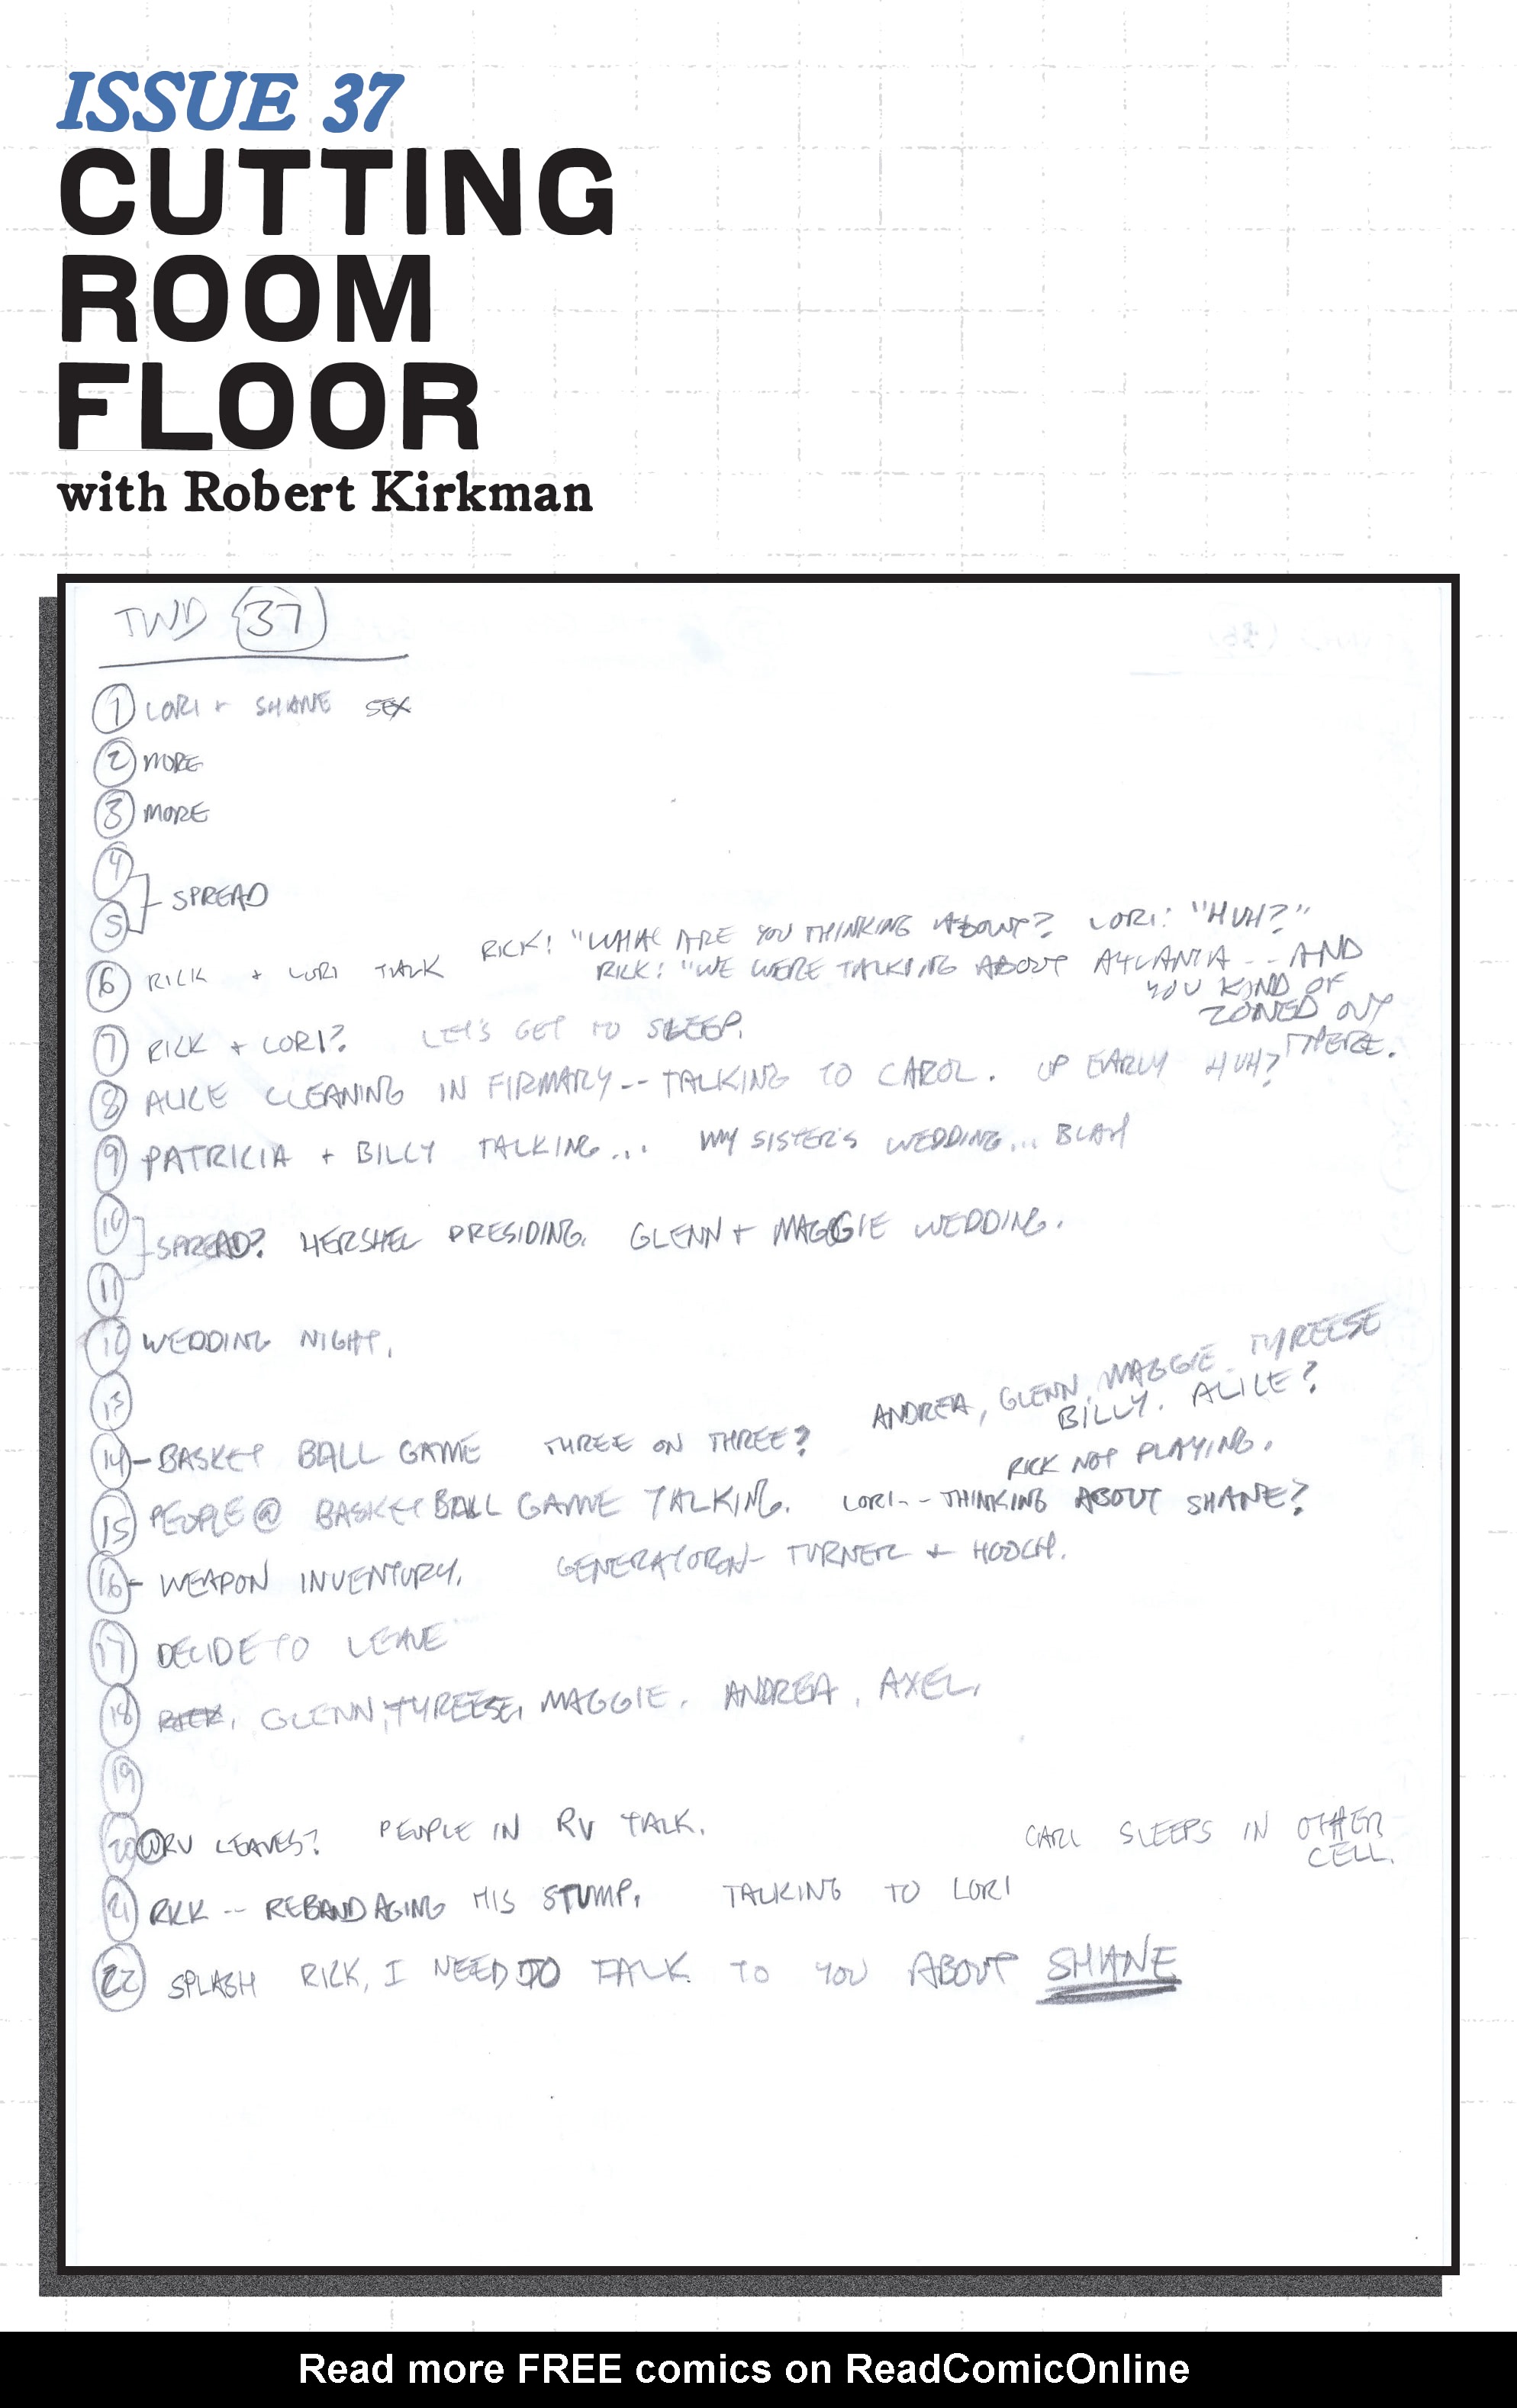 ISSUE 37
CUTTING
ROOM
FLOOR
with Robert Kirkman
TWD 37
1 LORI + SHANE SEX
2 MORE
3 MORE
4
5 SPREAD
6 RICK + LORI TALK RICK: "WHAT ARE YOU THINKING ABOUT? LORI: "HUH?"
RICK: "WE WERE TALKING ABOUT ATLANTA -- AND
YOU KIND OF
ZONED OUT
THERE.
7 RICK + LORI? LET'S GET TO SLEEP.
8 ALICE CLEANING IN FIRMARY -- TALKING TO CAROL. UP EARLY HUH?
9 PATRICIA + BILLY TALKING... MY SISTER'S WEDDING... BLAH
10
SPREAD? HERSHEL PRESIDING. GLENN + MAGGIE WEDDING.
11
12 WEDDING NIGHT.
13
ANDREA, GLENN, MAGGIE TYREESE
BILLY. ALICE?
14 - BASKET BALL GAME THREE ON THREE?
RICK NOT PLAYING.
15 PEOPLE @ BASKETBALL GAME TALKING. LORI -- THINKING ABOUT SHANE?
16 - WEAPON INVENTORY. TURNER + HOOCH.
17 DECIDE TO LEAVE
18 RICK, GLENN, TYREESE, MAGGIE. ANDREA, AXEL.
19
20 RV LEAVES? PEOPLE IN RV TALK.
CARL SLEEPS IN OTHER
CELL.
21 RICK -- REBANDAGING HIS STUMP. TALKING TO LORI
22 SPLASH RICK, I NEED TO TALK TO YOU ABOUT SHANE
Read more FREE comics on ReadComicOnline